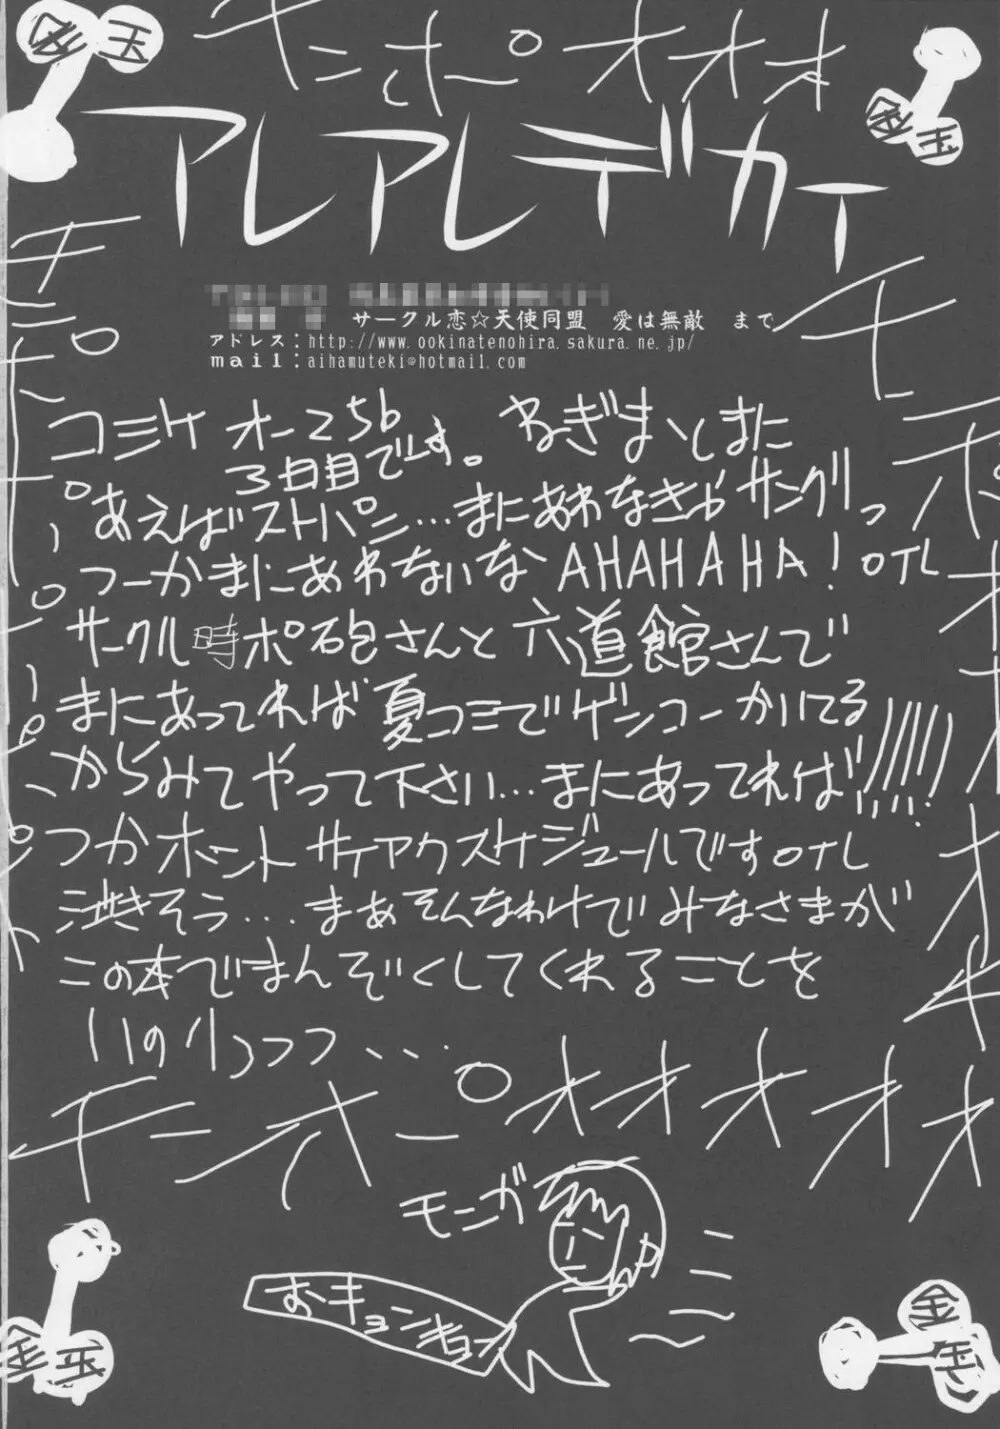 金玉
チンポーオオオ
金玉
アレアレデカイ
サークル恋☆天使同盟 愛は無敵 まで
アドレス：http://www.ookinatenohira.sakura.ne.jp/
mail：aihamuteki@hotmail.com
コミケ オー25b
3日目です。 ねぎまとしまに
あえばストパン…まにあわなきゃサングリっ
つーかまにあわないな AHAHAHA! OTL
サークル時ポ砲さんと六道館さんで
まにあってれば夏コミでゲンコーかいてる
からみてやって下さい…まにあってれば!!!!!
つかホントサイアクスケジュールですOTL
泣きそう…まぁそんなわけでみなさまが
この本でまんぞくしてくれることを
いのりつつっ…
チンポーオオオオオオ
モニガ
おキョンキョン
金玉
金玉